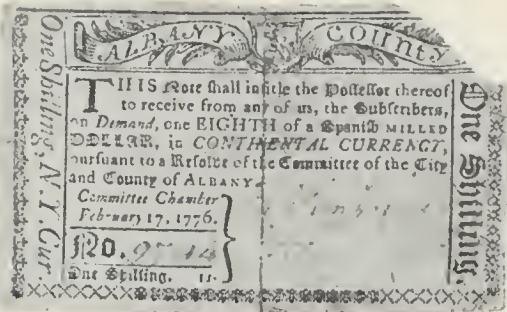 ALBANY COUNTY
THIS Note ſhall intitle the Poſſeſſor thereof
to receive from any of us, the Subſcribers,
on Demand, one EIGHTH of a Spaniſh MILLED
DOLLAR, in CONTINENTAL CURRENCY,
purſuant to a Reſolve of the Committee of the City
and County of ALBANY.
Committee Chamber
February 17, 1776.
No.
One Shilling. 1s.
One Shilling, N.Y. Cur.
One Shilling.